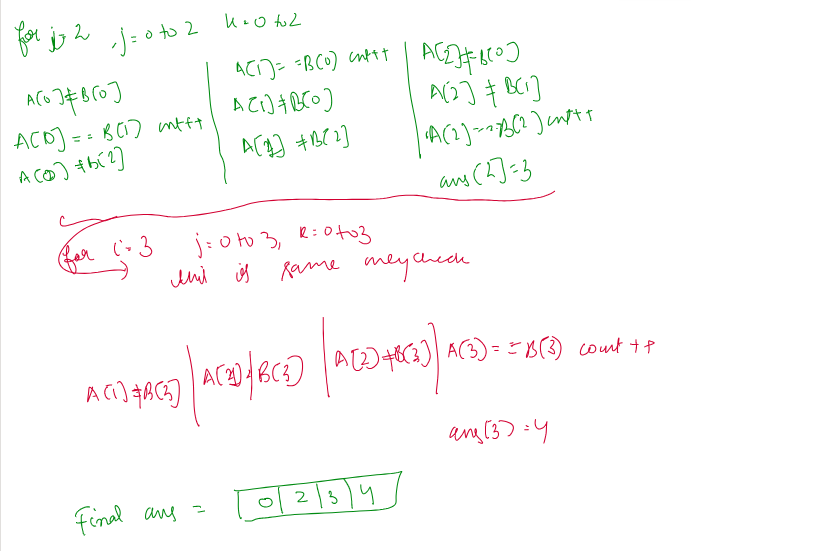 for i=2 , j=0 to 2 k=0 to 2
A[0]≠B[0]
A[0]==B[1) cnt++
A[0]≠B[2]
A[1]==B[0) cnt++
A[1]≠B[0]
A[1]≠B[2]
A[2]≠B[0]
A[2]≠B[1]
A[2]==B[2) cnt++
ans[2]=3
for i=3 j=0 to 3, k=0 to 3
is same
A[1]≠B[3]
B[3]
A[2]≠B[3]
A[3)==B[3) count ++
ans[3)=4
Final ans = 0 2 3 4